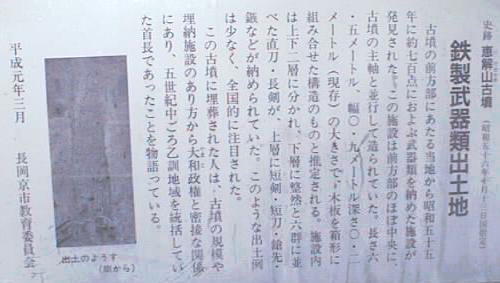 史跡 恵解山古墳 (昭和五十六年十月十三日国指定)
鉄製武器類出土地
古墳の前方部にあたる当地から昭和五十五
年に約七百点におよぶ武器類を納めた施設が
発見された。この施設は前方部のほぼ中央に、
古墳の主軸と並行して造られていた。長さ六
・五メートル、幅〇・九メートル深さ〇・二
メートル(現存)の大きさで、木板を箱形に
組み合せた構造のものと推定される。施設内
は上下二層に分かれ、下層に整然と六群に並
べた直刀・長剣が、上層に短剣・短刀・鎗先・
鏃などが納められていた。このような出土例
は少なく、全国的に注目された。
この古墳に埋葬された人は、古墳の規模や
埋納施設のあり方から大和政権と密接な関係
にあり、五世紀中ごろ乙訓地域を統括してい
た首長であったことを物語っている。
平成元年三月
長岡京市教育委員会
出土のようす
(南から)